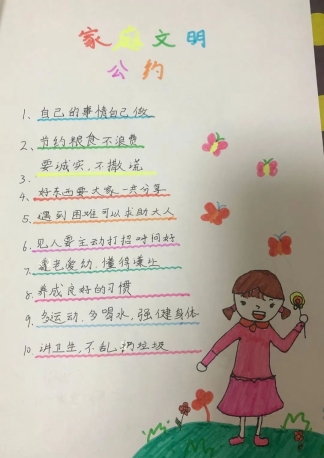 家庭文明
公约
1、自己的事情自己做
2、节约粮食不浪费
3、要诚实,不撒谎
4、好东西要大家一共分享
5、遇到困难可以求助大人
6、见人要主动打招呼问好
7、尊老爱幼,懂得谦让
8、养成良好的习惯
9、多运动,多喝水,强健身体
10、讲卫生,不乱扔垃圾